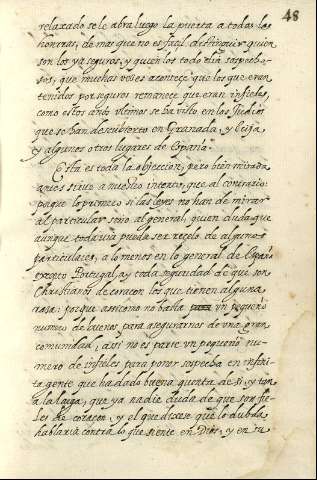 48
relaxado se le abra luego la puerta a todas las
honrras, demas que no es facil distinguir quien
son los ya seguros, y quien los todo dia sospecho-
sos, que muchas veçes aconteçe que los que eran
tenidos por seguros remaneçe que eran infieles,
como estos años ultimos se ha visto en los Judios
que se han descubierto en Granada, y Ecija,
y algunos otros lugares de España.
Esta es toda la objeccion, pero bien mirada
antes sirve a nuestro intento, que al contrario
porque lo primero si las leyes no han de mirar
al particular sino al general, quien duda que
aunque todavia pueda ser reçelo de algunos
particulares, a lo menos en lo general de España
excepto Portugal, ay toda seguridad de que son
Christianos de coraçon los que tienen alguna
raza: porque assi como no basta un pequeño
numero de buenos para asegurarnos de una gran
comunidad, assi no es parte un pequeño nu-
mero de infieles para poner sospecha en infini-
ta gente que ha dado buena quenta de si, y tan
a la larga, que ya nadie duda de que son fie-
les de coraçon, y el que dixese que lo dubda
hablaria contra lo que siente en Dios, y en su